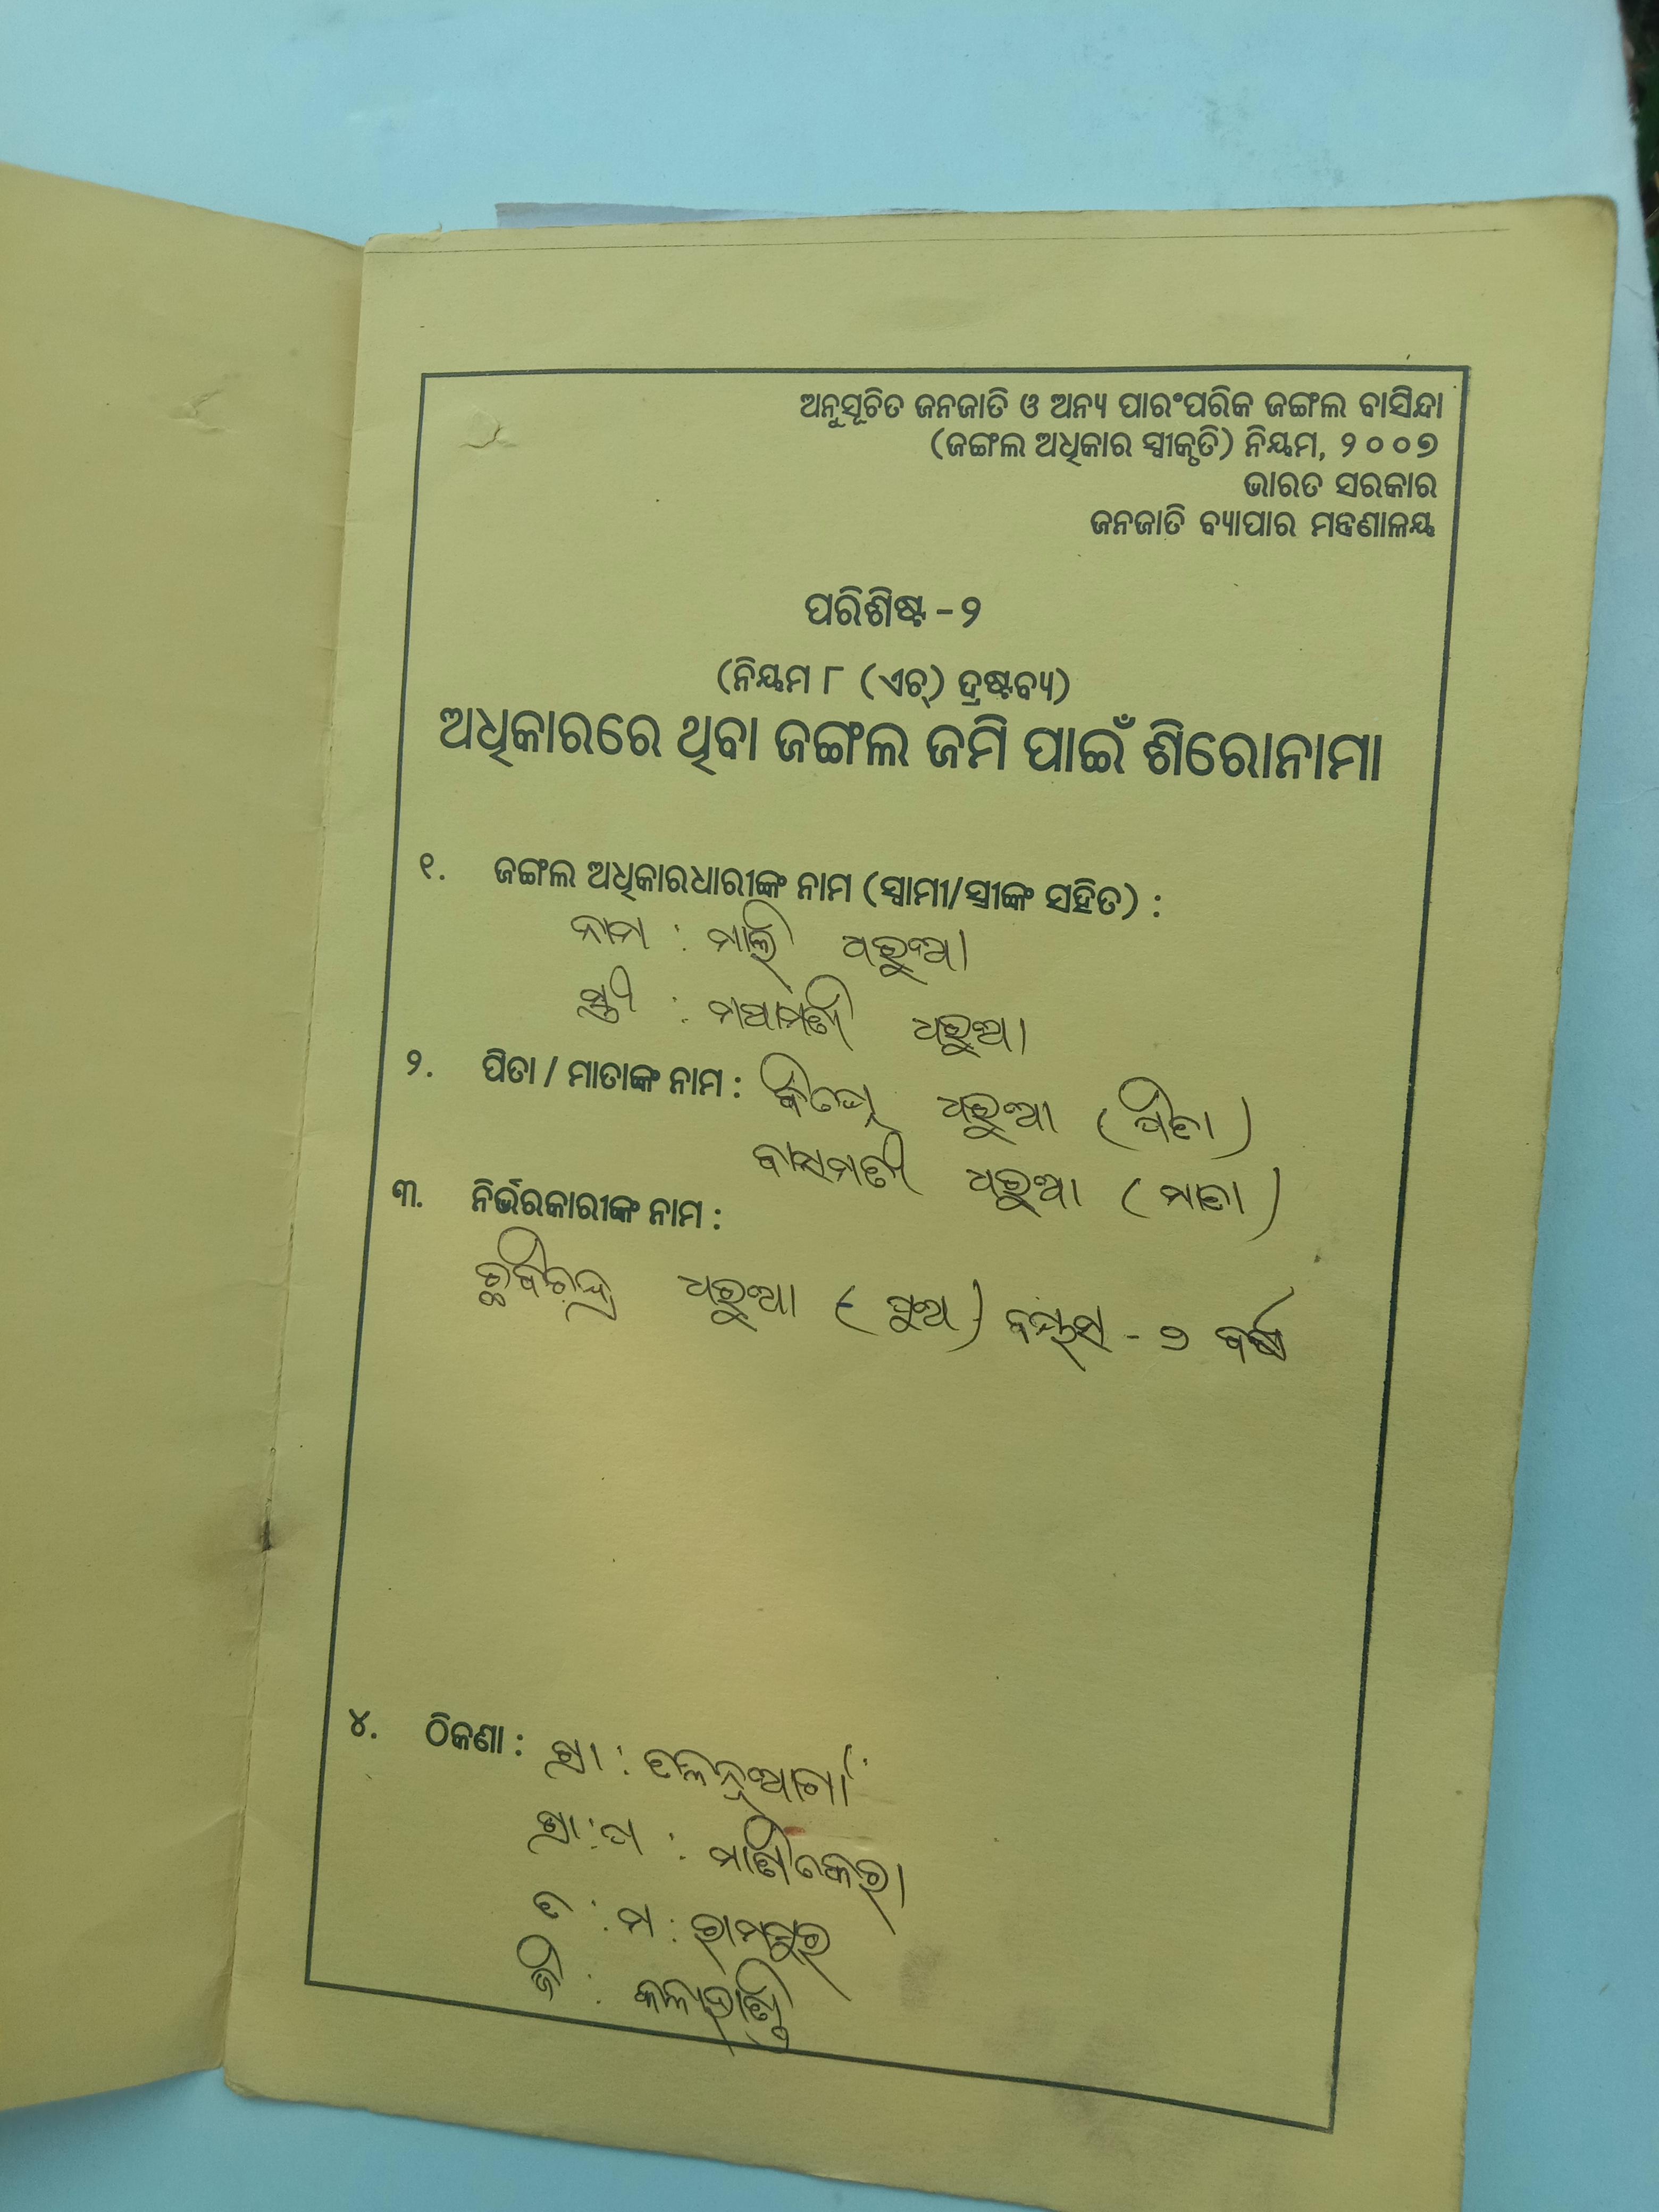 ଅନୁସୂଚିତ ଜନଜାତି ଓ ଅନ୍ୟ ପାରଂପରିକ ଜଙ୍ଗଲ ବାସିନ୍ଦା
(ଜଙ୍ଗଲ ଅଧିକାର ସ୍ୱୀକୃତି) ନିୟମ, ୨୦୦୭
ଭାରତ ସରକାର
ଜନଜାତି ବ୍ୟାପାର ମନ୍ତ୍ରଣାଳୟ
ପରିଶିଷ୍ଟ - ୨
(ନିୟମ ୮ (ଏଚ୍) ଦ୍ରଷ୍ଟବ୍ୟ)
ଅଧିକାରରେ ଥିବା ଜଙ୍ଗଲ ଜମି ପାଇଁ ଶିରୋନାମା
୧. ଜଙ୍ଗଲ ଅଧିକାରଧାରୀଙ୍କ ନାମ (ସ୍ୱାମୀ/ସ୍ତ୍ରୀଙ୍କ ସହିତ) :
ନାମ : ଧରୁଆ
ସ୍ତ୍ରୀ : ଧରୁଆ
୨. ପିତା / ମାତାଙ୍କ ନାମ : ଧରୁଆ (ପିତା)
ବାସମତୀ ଧରୁଆ (ମାତା)
୩. ନିର୍ଭରକାରୀଙ୍କ ନାମ :
ଛବିଚନ୍ଦ୍ର ଧରୁଆ (ପୁଅ) ବୟସ - ୭ ବର୍ଷ
୪. ଠିକଣା : ଗ୍ରା :
ଗ୍ରା : ପ :
ତ : ମ : ରାମପୁର
ଜି : କଳାହାଣ୍ଡି